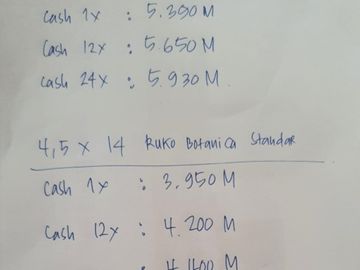 Cash 1x : 5.390 M
Cash 12x : 5.650 M
Cash 24x : 5.930 M.
4,5 x 14 Ruko Botanica Standar
Cash 1x : 3.950 M
Cash 12x : 4.200 M
: 4.400 M